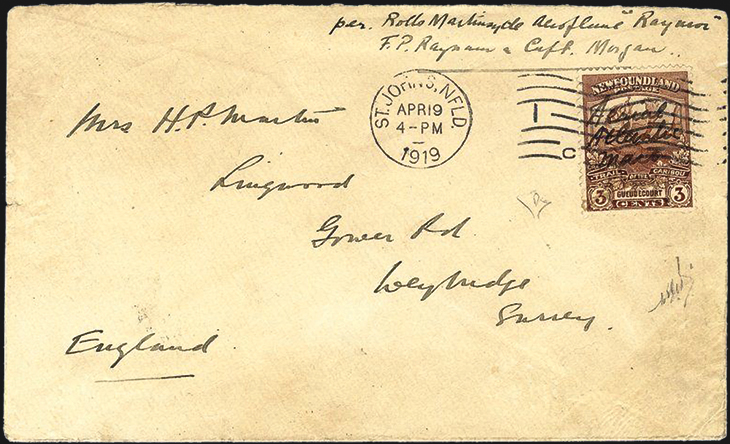 per. Rolls Martinsyde Aeroplane "Raymor"
F.P. Raynham & Capt. Morgan..
ST. JOHN'S, NFLD.
APR 19
4-PM
1919
NEWFOUNDLAND
POSTAGE
Aerial
Atlantic
Mail
TRAIL OF THE CARIBOU
GUEUDECOURT
3 CENTS 3
Mrs H.P. Martin
Lingwood
Gower Rd
Weybridge
Surrey.
England